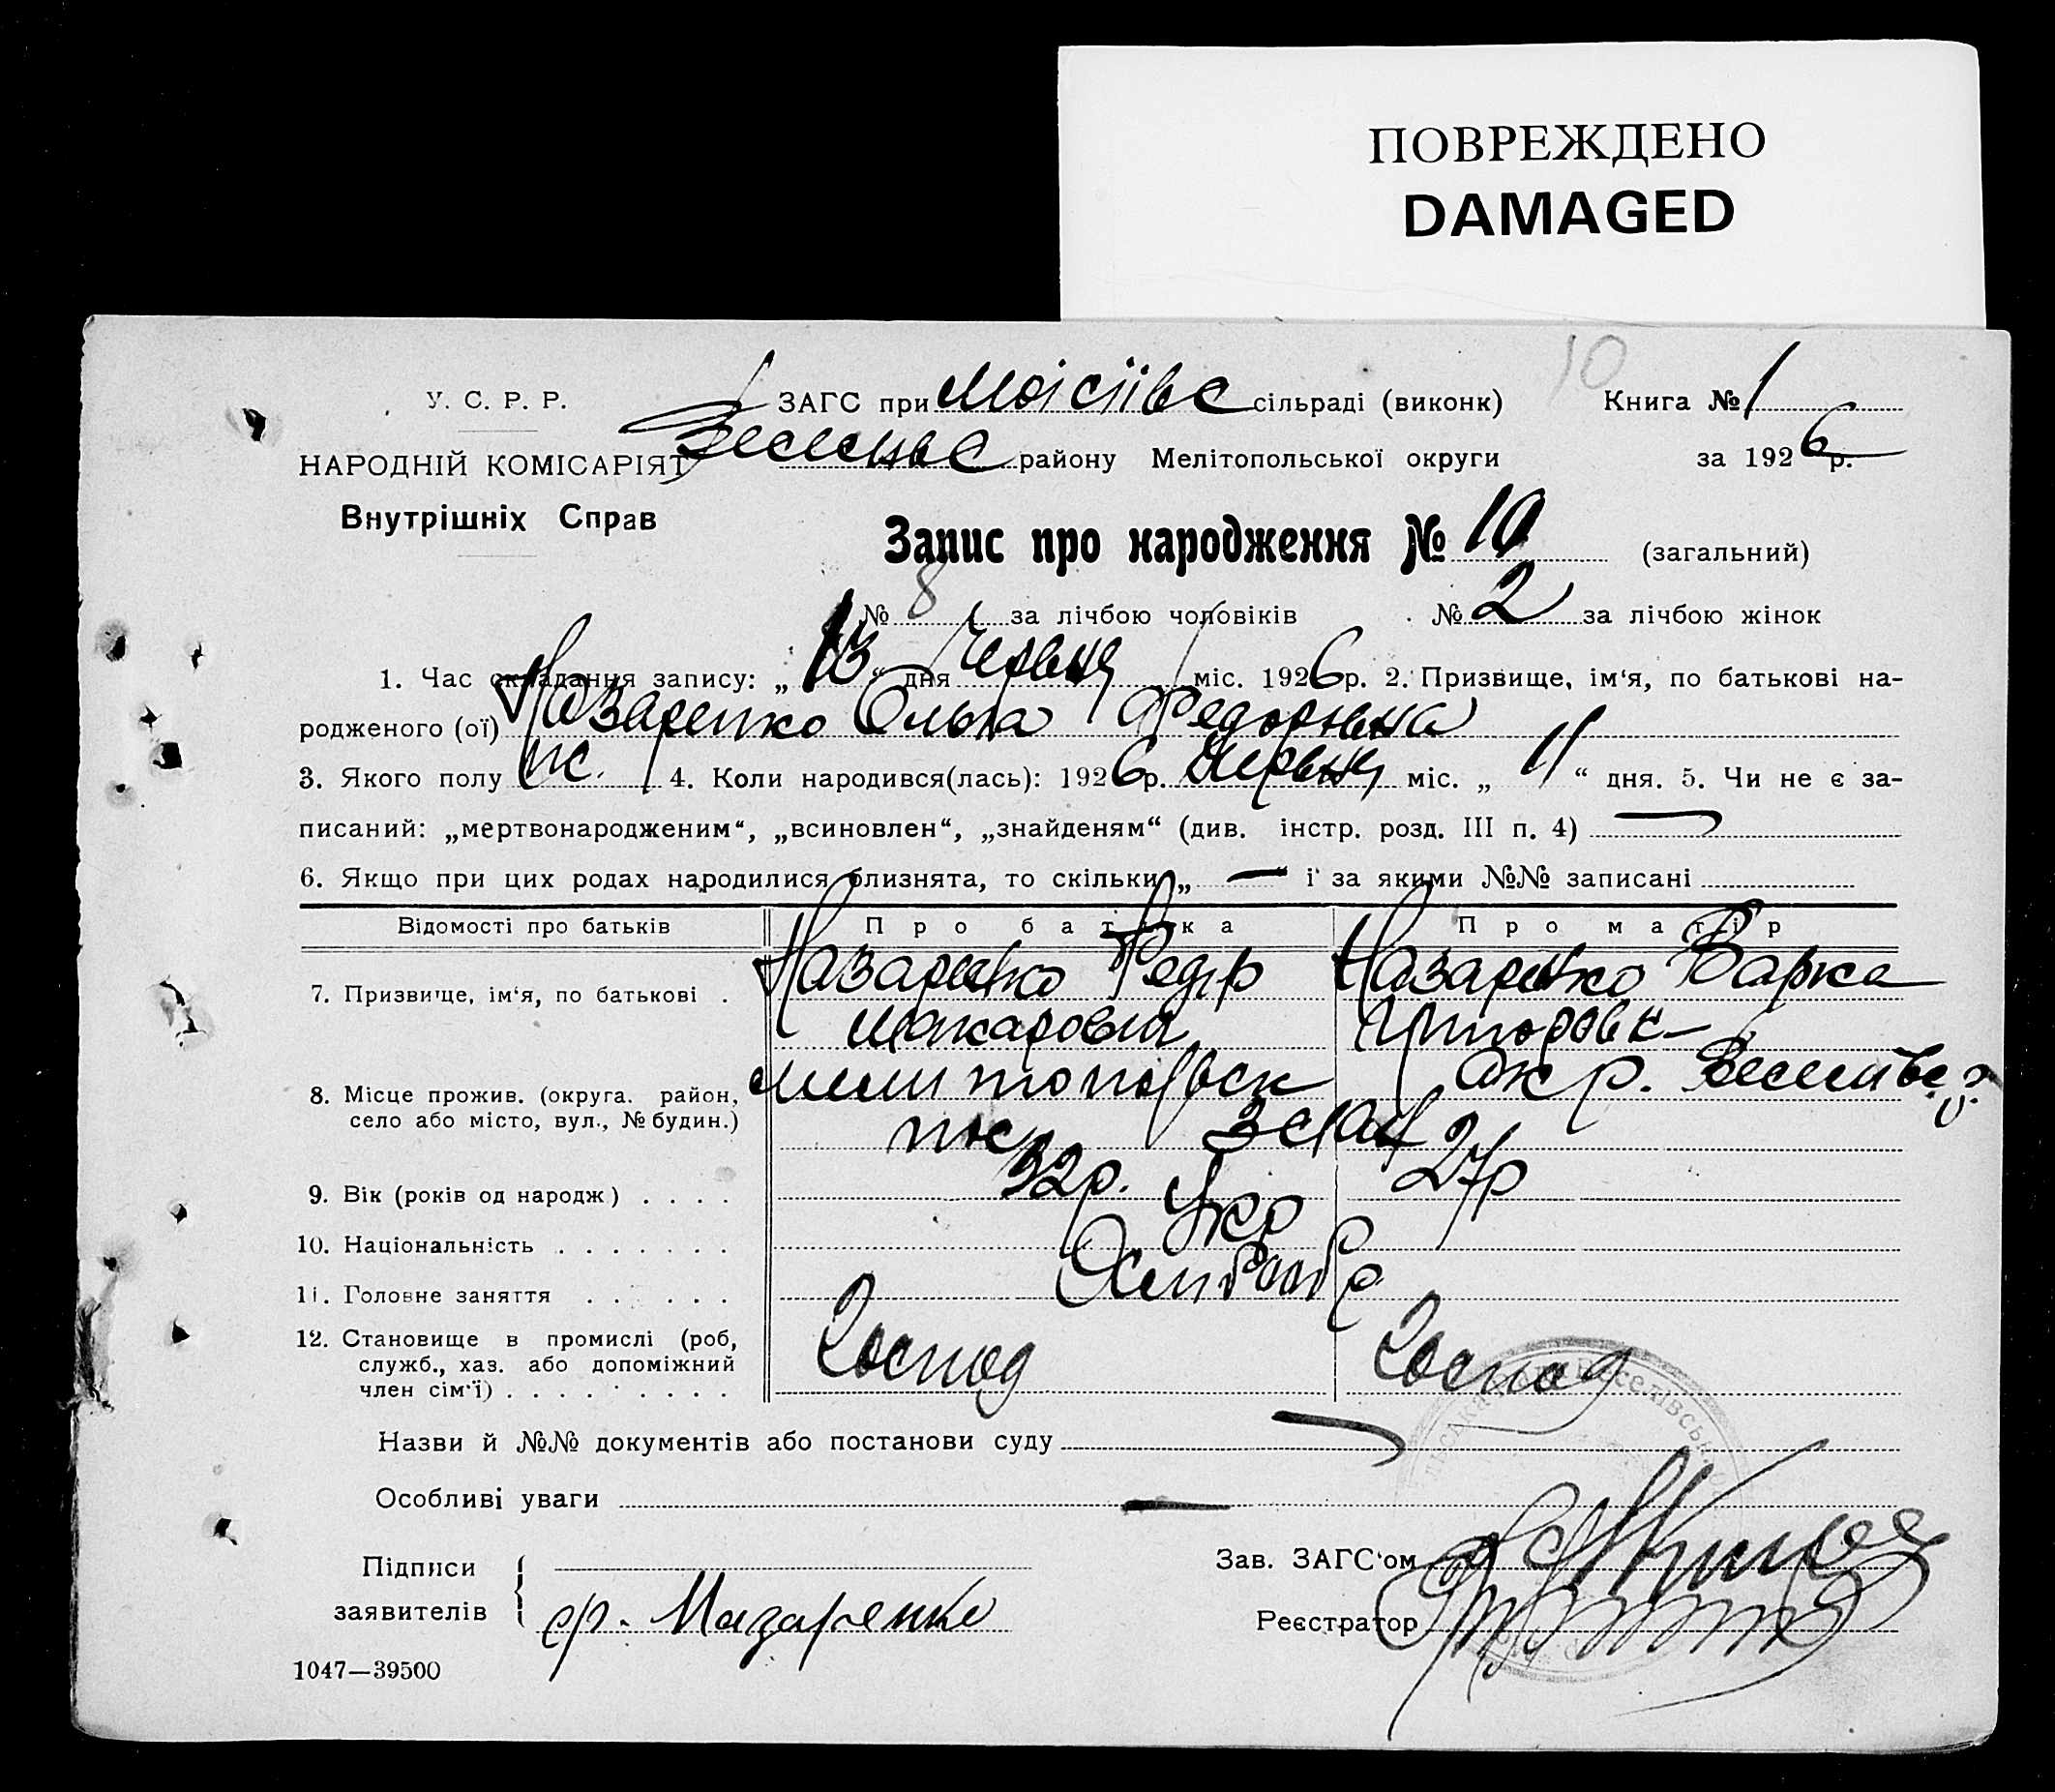 ПОВРЕЖДЕНО
DAMAGED
10
У. С. Р. Р. ЗАГС при Моісіївс сільраді (виконк) Книга № 1
НАРОДНІЙ КОМІСАРІЯТ району Мелітопольської округи за 1926 р.
Внутрішніх Справ
Запис про народження № 10 (загальний)
№ 8 за лічбою чоловіків № 2 за лічбою жінок
1. Час складання запису: „13“ дня Червня міс. 1926 р. 2. Призвище, ім‘я, по батькові на-
родженого (ої) Назаренко Ольга Федорівна
3. Якого полу ж. 4. Коли народився(лась): 1926 р. Червня міс. „11“ дня. 5. Чи не є за-
писаний: „мертвонародженим“, „всиновлен“, „знайденям“ (див. інстр. розд. III п. 4) —
6. Якщо при цих родах народилися близнята, то скільки „ — “ і за якими №№ записані
Відомості про батьків Про батька Про матір
7. Призвище, ім‘я, по батькові . Назаренко Федір Назаренко Варка
Макарович
8. Місце прожив. (округа. район, окр.
село або місто, вул., № будин.)
9. Вік (років од народж) . . . . 32 р. 27 р
10. Національність . . . . . . . Укр
11. Головне заняття . . . . . . Хлібороб
12. Становище в промислі (роб,
служб., хаз. або допоміжний
член сім‘ї) . . . . . . . . . Господ Господ
Назви й №№ документів або постанови суду —
Особливі уваги —
Підписи Зав. ЗАГС‘ом
заявителів гр. Назаренко Реєстратор
1047—39500